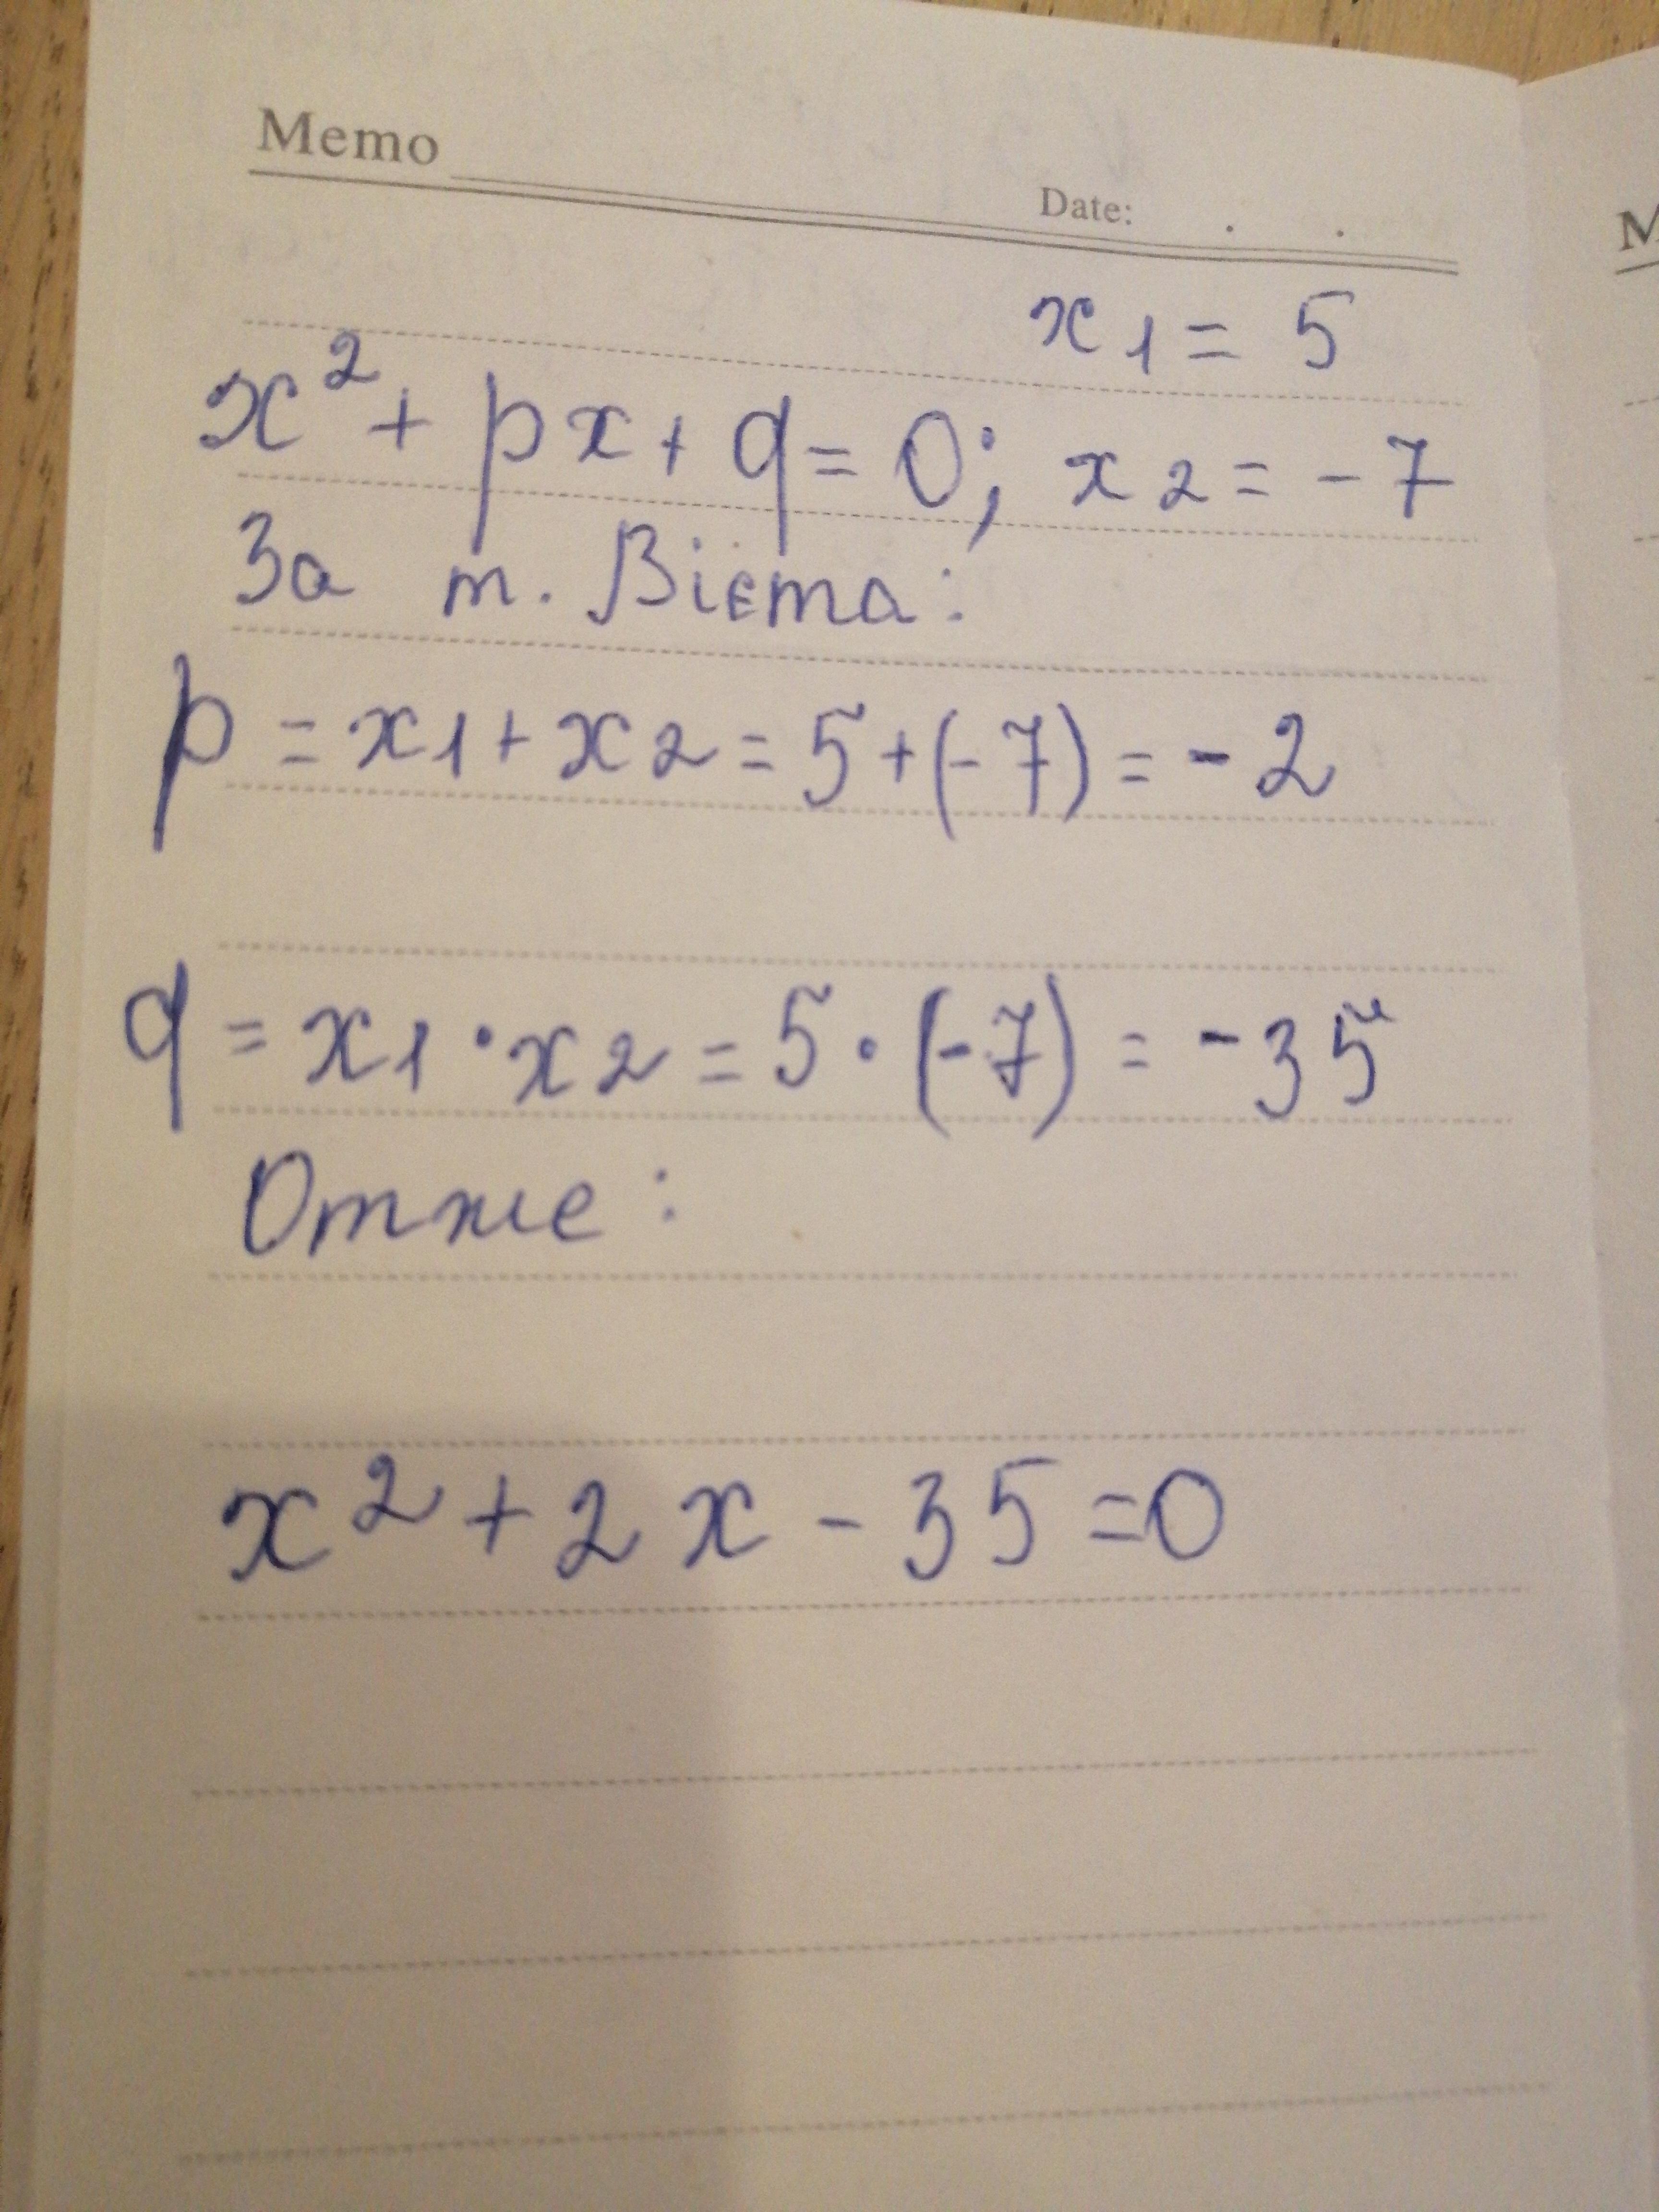 Memo
Date: . .
x1 = 5
x² + px + q = 0; x2 = -7
За т. Вієта:
p = x1 + x2 = 5 + (-7) = -2
q = x1 · x2 = 5 · (-7) = -35
Отже:
x² + 2x - 35 = 0